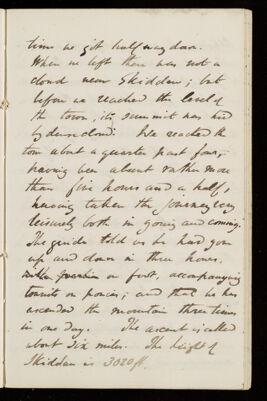 time we got half way down.
When we left there was not a
cloud near Skiddaw; but
before we reached the level of
the town, its summit was hid
by dense cloud. We reached the
town about a quarter past four,
having been absent rather more
than five hours and a half,
having taken the journey very
leisurely both in going and coming.
The guide told us he had gone
up and down in three hours.
on foot, accompanying
tourists on ponies; and that he has
ascended the mountain three times
in one day. The ascent is called
about six miles. The height of
Skiddaw is 3020 ft.